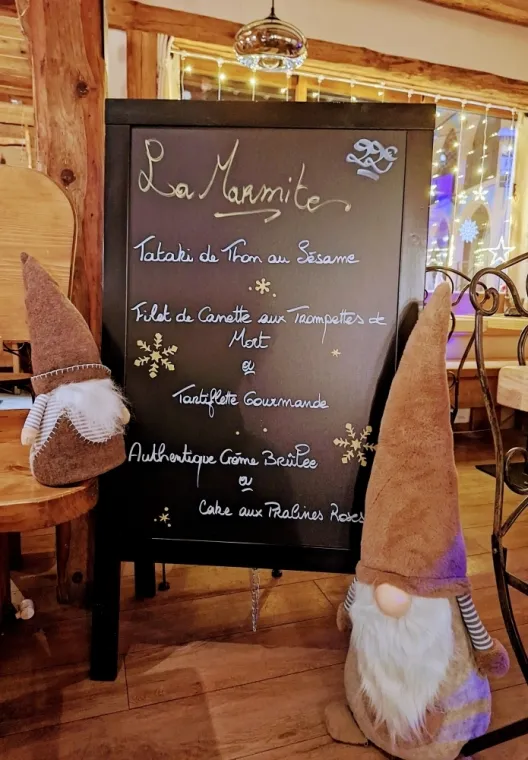 La Marmite
22€
Tataki de Thon au Sésame
Filet de Canette aux Trompettes de
Mort
ou
Tartiflette Gourmande
Authentique Crème Brûlée
ou
Cake aux Pralines Roses